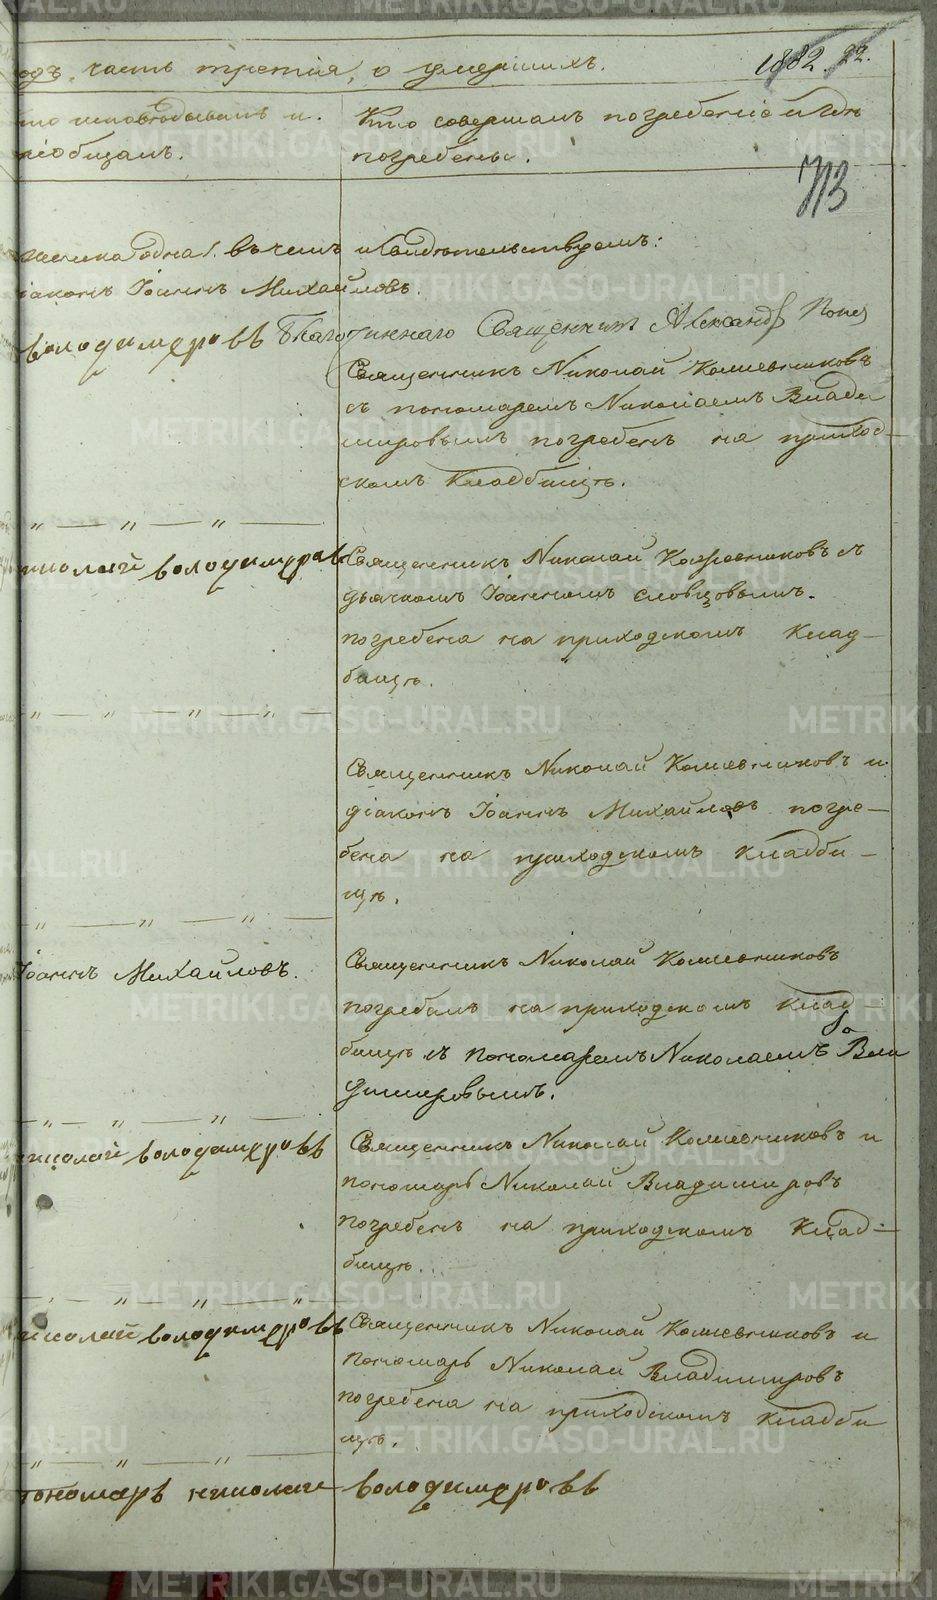 одъ, часть третiя, о умершихъ.
1882. 22.
то исповѣдывалъ и.
Кто совершалъ погребенiе и гдѣ
рiобщалъ.
погребены.
713
одна/. въ чемъ и свидѣтельствуемъ:
iаконъ Iоаннъ Михайловъ.
володимеровъ Благочиннаго Священникъ Александръ Попо
Священникъ Николай Кошевниковъ
съ пономаремъ Николаемъ Влади
мировымъ погребенъ на приход-
скомъ Кладбищѣ.
николай володимировъ
Священникъ Николай Кожевниковъ съ
дьячкомъ Iоанномъ словцовымъ.
погребена на приходскомъ Клад-
бищѣ.
Священникъ Николай Кошевниковъ и
дiаконъ Iоаннъ Михайловъ погре-
бена на приходскомъ Кладби-
щѣ.
Iоаннъ Михайловъ.
Священникъ Николай Кошевниковъ
погребалъ на приходскомъ Клад
бищѣ съ пономаремъ Николаемъ Вла
димировымъ.
николай володимеровъ
Священникъ Николай Кошевниковъ и
пономарь Николай Владимировъ
погребенъ на приходскомъ Клад-
бищѣ.
николай володимеровъ
Священникъ Николай Кошевниковъ и
пономарь Николай Владимировъ
погребена на приходскомъ Кладби
щѣ.
пономарь николай володимеровъ
METRIKI.GASO-URAL.RU